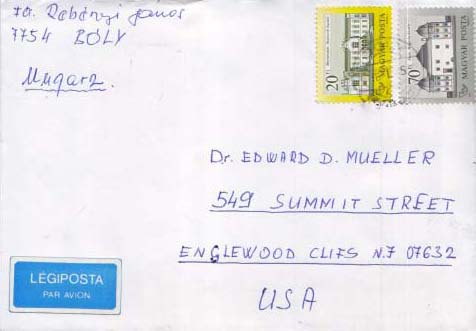 Rabányi János
7754 BÓLY
20
MAGYAR POSTA
70
MAGYAR POSTA
Dr. EDWARD D. MUELLER
549 SUMMIT STREET
ENGLEWOOD CLIFS N.7 07632
USA
LÉGIPOSTA
PAR AVION